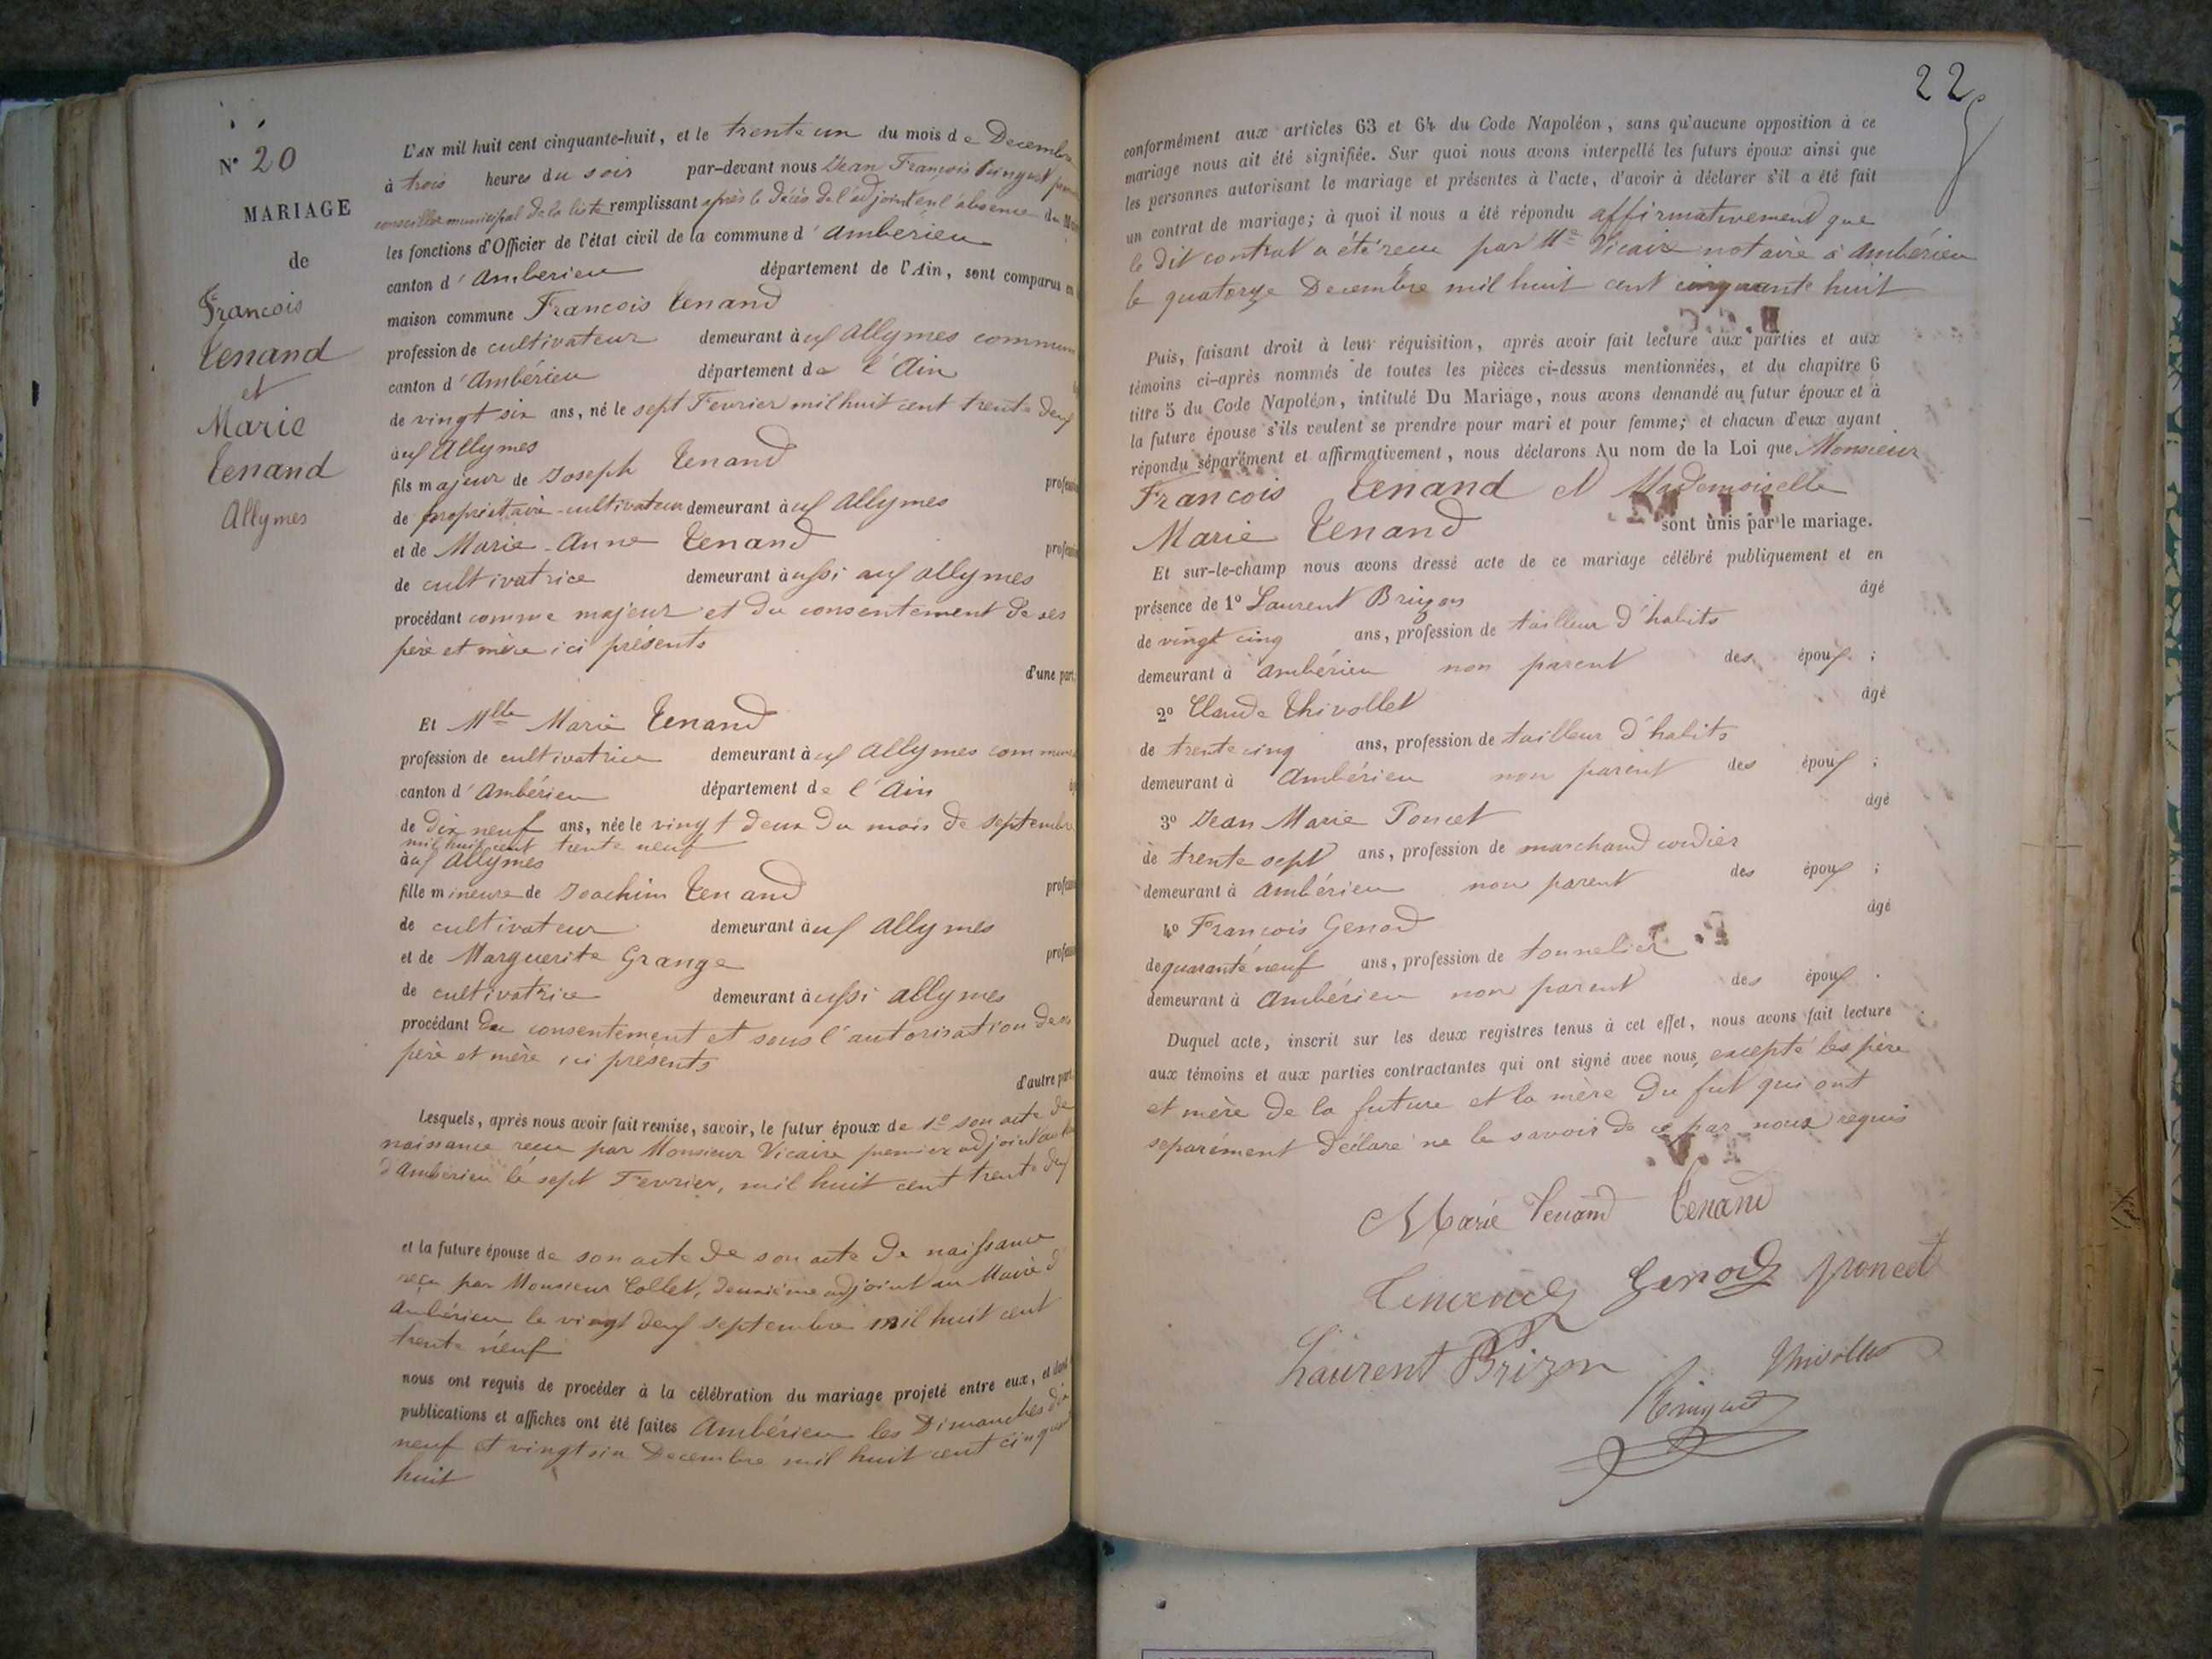 N° 20
MARIAGE
de
François
Tenand
et
Marie
Tenand
Allymes
L'AN mil huit cent cinquante-huit, et le trente un du mois de Decembre
à trois heures du soir par-devant nous Jean François
conseiller municipal de la liste remplissant après le décès de l'adjoint en l'absence du
les fonctions d'Officier de l'état civil de la commune d'Ambérieu
canton d'Ambérieu département de l'Ain, sont comparus en
maison commune François Tenand
profession de cultivateur demeurant à ux Allymes commun
canton d'Ambérieu département de l'Ain
de vingt six ans, né le sept Fevrier mil huit cent trente deux
à ux Allymes
fils majeur de Joseph Tenand
de propriétaire-cultivateur demeurant à ux Allymes
et de Marie-Anne Tenand
de cultivatrice demeurant à ussi aux allymes
procédant comme majeur et du consentement de ses
père et mère ici présents
d'une part.
Et Mlle Marie Tenand
profession de cultivatrice demeurant à ux Allymes commune
canton d'Ambérieu département de l'Ain
de dix neuf ans, née le vingt deux du mois de septembre
mil huit cent trente neuf
à ux Allymes
fille mineure de Joachim Tenand
de cultivateur demeurant à ux Allymes
et de Marguerite Grange
de cultivatrice demeurant à ussi allymes
procédant du consentement et sous l'autorisation de ses
père et mère ici présents
d'autre part.
Lesquels, après nous avoir fait remise, savoir, le futur époux de 1° son acte de
naissance reçu par Monsieur Vicaire premier adjoint au
d'Ambérieu le sept Fevrier, mil huit cent trente deux
et la future épouse de son acte de son acte de naissance
reçu par Monsieur Collet, deuxième adjoint au Maire d'
Ambérieu le vingt deux septembre mil huit cent
trente neuf
nous ont requis de procéder à la célébration du mariage projeté entre eux, et dont
publications et affiches ont été faites Ambérieu les Dimanches dix
neuf et vingt six Decembre mil huit cent cinquante
huit
22
conformément aux articles 63 et 64 du Code Napoléon, sans qu'aucune opposition à ce
mariage nous ait été signifiée. Sur quoi nous avons interpellé les futurs époux ainsi que
les personnes autorisant le mariage et présentes à l'acte, d'avoir à déclarer s'il a été fait
un contrat de mariage; à quoi il nous a été répondu affirmativement que
le dit contrat a été reçu par Me Vicaire notaire à Ambérieu
le quatorze Decembre mil huit cent cinquante huit
Puis, faisant droit à leur réquisition, après avoir fait lecture aux parties et aux
témoins ci-après nommés de toutes les pièces ci-dessus mentionnées, et du chapitre 6
titre 5 du Code Napoléon, intitulé Du Mariage, nous avons demandé au futur époux et à
la future épouse s'ils veulent se prendre pour mari et pour femme; et chacun d'eux ayant
répondu séparément et affirmativement, nous déclarons Au nom de la Loi que Monsieur
François Tenand et Mademoiselle
Marie Tenand sont unis par le mariage.
Et sur-le-champ nous avons dressé acte de ce mariage célébré publiquement et en
présence de 1° Laurent Brizon âgé
de vingt cinq ans, profession de tailleur d'habits
demeurant à Ambérieu non parent des époux ;
2° Claude Thivollet âgé
de trente cinq ans, profession de tailleur d'habits
demeurant à Ambérieu non parent des époux ;
3° Jean Marie Poncet âgé
de trente sept ans, profession de marchand cordier
demeurant à Ambérieu non parent des époux ;
4° François Genod âgé
de quarante neuf ans, profession de tonnelier
demeurant à Ambérieu non parent des époux .
Duquel acte, inscrit sur les deux registres tenus à cet effet, nous avons fait lecture
aux témoins et aux parties contractantes qui ont signé avec nous, excepté les père
et mère de la future et la mère du fut qui ont
separément déclaré ne le savoir de ce par nous requis
Marie Tenand Tenand
Tenand Genod poncet
Laurent Brizon Thivollet